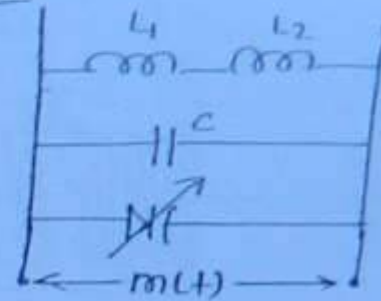 L1 L2
C
m(t)